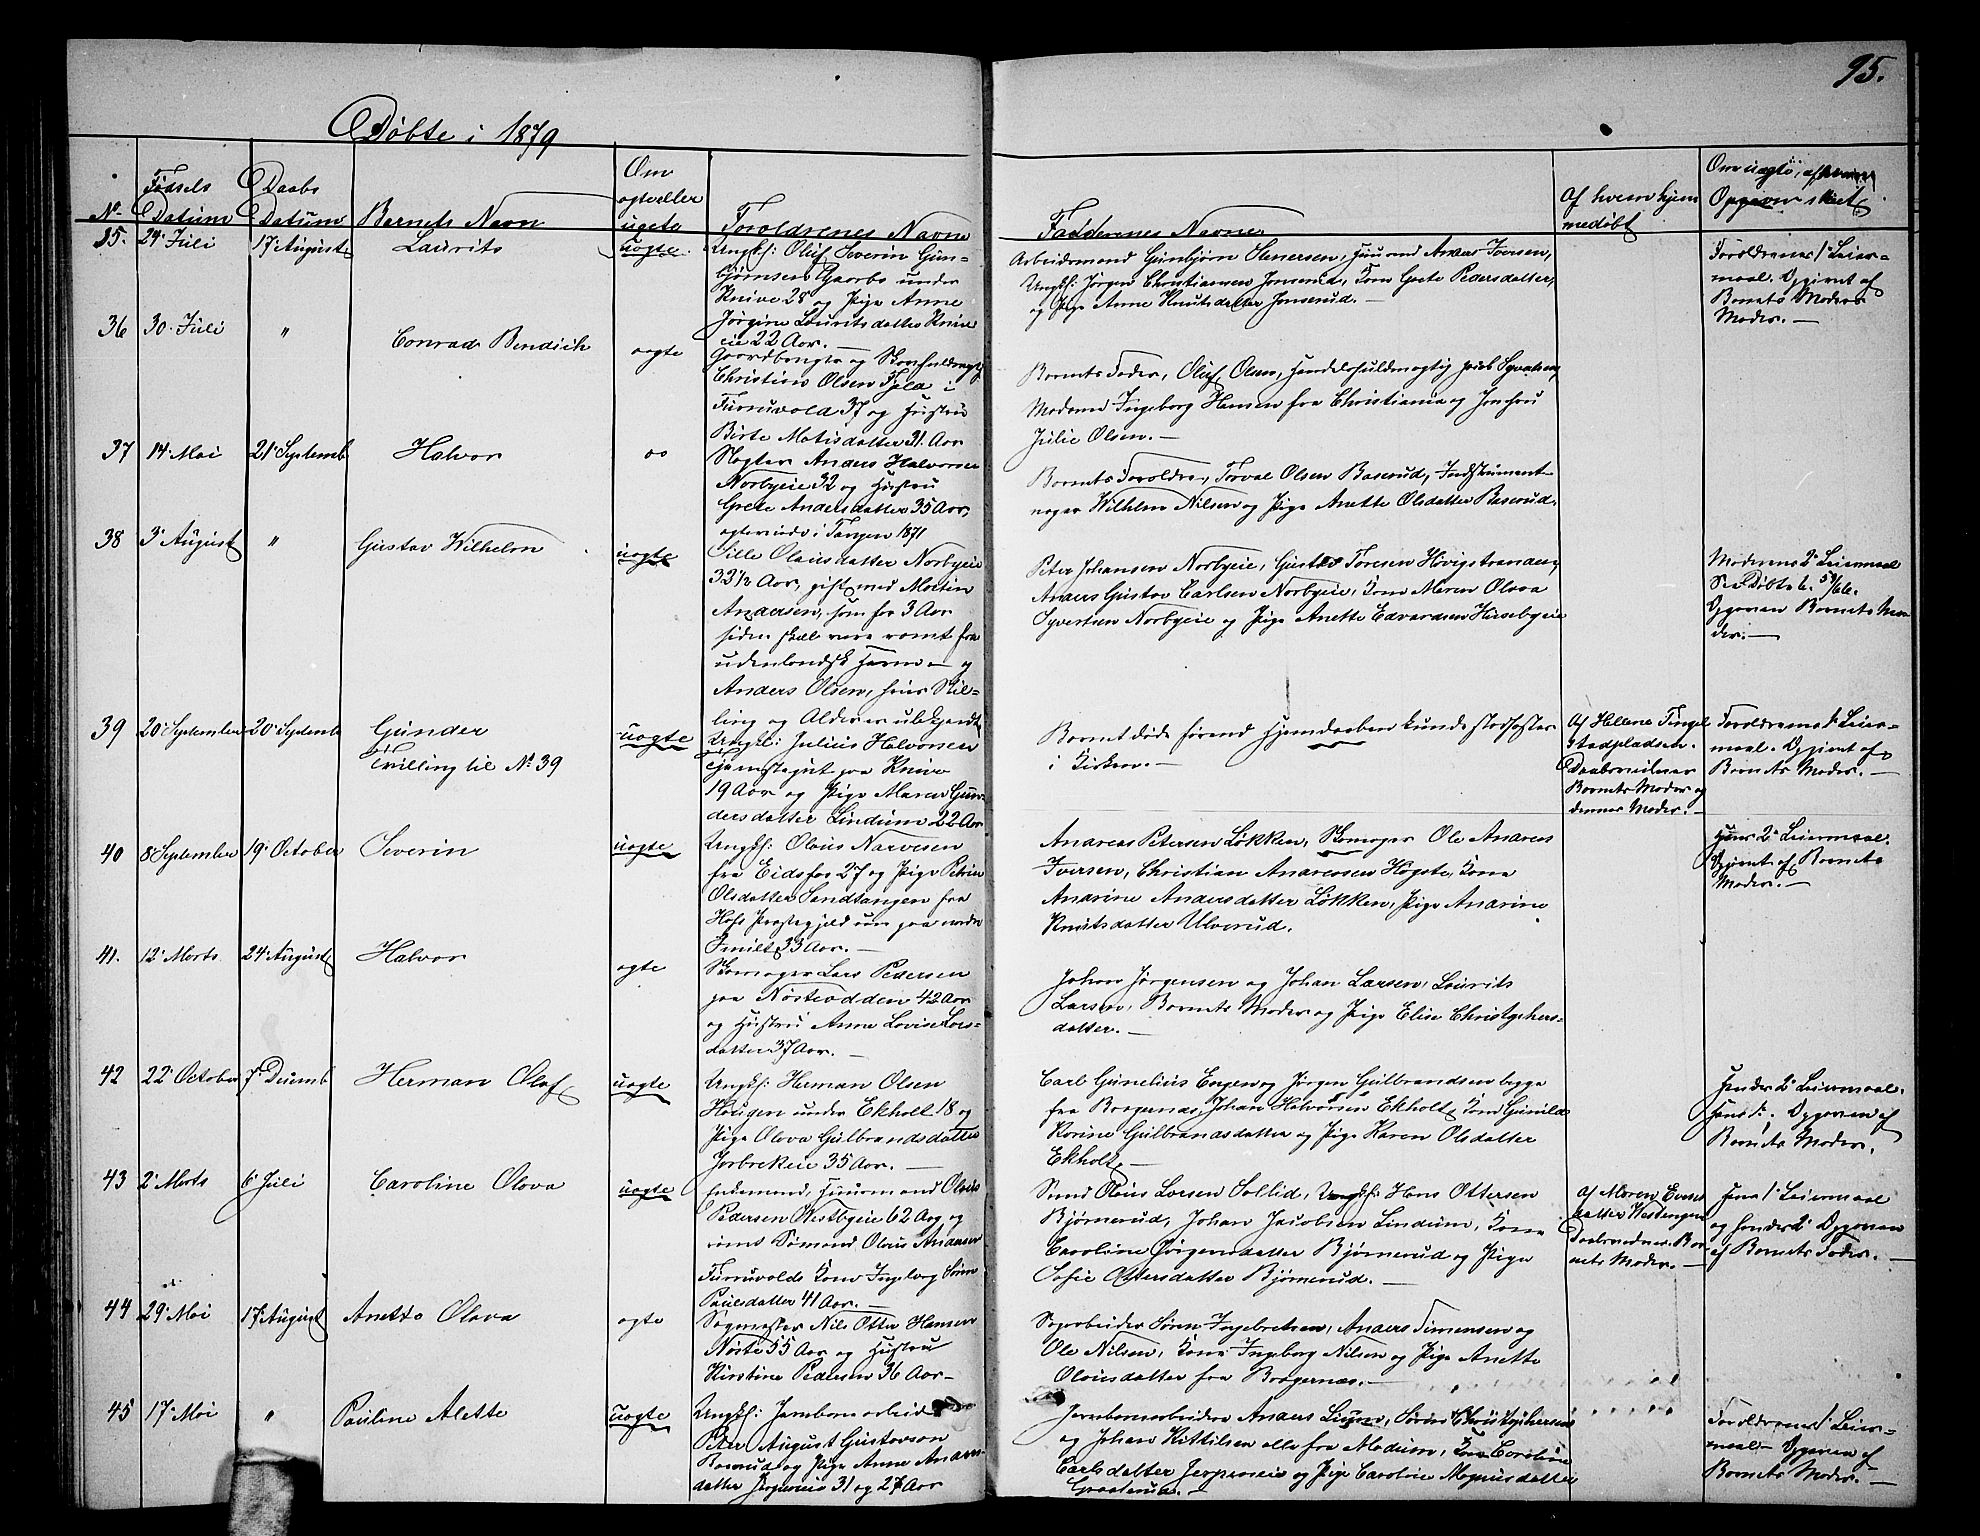 95.
Døbte i 1879
No. Fødsels Datum Daabs Datum Barnets Navn Om ægte eller uægte Forældrenes Navne Faddernes Navne Af hvem hjemmedøbt Om uægte, af hvem Opgiven skeet
35. 24 Juli 17 August Laurits uægte
Ungkf: Oluf Severin Gun-
bjørnsen Gaarbo under
Knive 28 og Pige Anne
Jørgine Lauritsdatter Knive
eie 22 Aar.
Arbeidsmand Gunbjørn Stenersen, Huusmand Anders Iversen,
Ungkf: Jørgen Christiansen Jonserud, Kone Grete Pedersdatter,
og Pige Anne Knutsdatter Jonserud.
Forældrenes 1ste Leier-
maal. Opgivet af
Barnets Moders
Moder.
36 30 Juli " Conrad Bendick ægte
Gaardbruger og
Christian Olsen Fjeld i
Furruvold 37 og Hustru
Birte Matisdatter 31 Aar
Barnets Fader, Oluf Olsen, Handelsfuldmægtig
Madame Ingeborg Hansen fra Christiania og Jomfru
Julie Olsen.
37 14 Mai 21 Septemb Halvor
Slagter Anders Halvorsen
Norbyeie 32 og Hustru
Grete Andersdatter 35 Aar,
ægteviede i Tangen 1871
Barnets Forældre, Torval Olsen Baserud, Instrument-
mager Wilhelm Nilsen og Pige Anette Olsdatter Baserud.
38 3 August " Gustav Wilhelm uægte
Sille Olausdatter Norbyeie
33 1/2 Aar, gift med Martin
Andersen, som for 3 Aar
siden skal være rømt fra
udenlandsk Havn og
Anders Olsen, hvis Stil-
ling og Alder er ubekjendt
Peter Johansen Norbyeie, Gustav Toresen Høvigstranden,
Anders Gustav Carlsen Norbyeie, Kone Maren Olava
Syvertsen Norbyeie og Pige Anette Edvardsen Hisebyeie
Moderens 2det Leiermaal
See Døbte
Opgiven Barnets Mo-
der.
39 20 September 20 Septemb Gunder
Tvilling til No 39 uægte
Ungkf: Julius Halvorsen
Tjenestegut paa Knive
19 Aar og Pige Maren Gun-
dersdatter Lindum 22 Aar
Barnet døde førend Hjemdaaben kunde stadfæstes
i Kirken.
Af Hellene Tingel-
stadpladsen.
Daabsvidner
Barnets Moder og
dennes Moder.
Forældrenes 1ste Leier-
maal. Opgivet af
Barnets Moder.
40 8 September 19 October Severin uægte
Ungkf: Olaus Narvesen
fra Eidsfos 27 og Pige Petrine
Olsdatter Sandtangen fra
Hofs Præstegjeld nu paa nordre
33 Aar.
Andreas Petersen Løkken, Skomager Ole Andreas
Iversen, Christian Andersen Høgste, Kone
Andrine Andersdatter Løkken, Pige Andrine
Knutsdatter Ulverud.
Hans 2det Leiermaal.
Opgivet af Barnets
Moder.
41. 12 Marts 24 August Halvor ægte
Skomager Lars Pedersen
paa Nøsteødden 42 Aar
og Hustru Anne Lovise Lars-
datter 37 Aar.
Johan Jørgensen og Johan Larsen, Laurits
Larsen, Barnets Moder og Pige Elise Christophers-
datter.
42 22 October 7 Decemb Herman Olaf uægte
Ungkf: Herman Olsen
Haugen under Ekholt 18 og
Pige Olava Gulbrandsdatter
Jarbrekeie 35 Aar.
Carl Gunelius Engen og Jørgen Gulbrandsen begge
fra Bragernæs, Johan Halvorsen Ekholt, Kone Gunild
Karine Gulbrandsdatter og Pige Karen Olsdatter
Ekholt.
Hendes 2det Leiermaal.
Hans 1ste. Opgiven af
Barnets Moder.
43 2 Marts 6 Juli Caroline Olava uægte
Enkemand, Huusmand Olaus
Pedersen Westbyeie 62 Aar og
rømt Sømand Olaus Andersen
Furruvolds Kone Ingeborg Sørine
Paulsdatter 41 Aar.
Smed Olaus Larsen Sollid, Ungkf: Hans Ottersen
Bjørnerud, Johan Jacobsen Lindum, Kone
Caroline Jørgensdatter Bjørnerud og Pige
Sofie Ottersdatter Bjørnerud.
af Maren Evens-
datter Westengen
Daabsvidner Bar-
nets Moder.
Hans 1ste Leiermaal
og hendes 2det Opgiven
af Barnets Fader.
44 29 Mai 17 August Anette Olava ægte
Sagmester Nils Otter Hansen
Nøste 55 Aar og Hustru
Kirstine Pedersen 36 Aar
Sagarbeider Søren Ingebretsen, Anders Simensen og
Ole Nilsen, Kone Ingeborg Nilsen og Pige Anette
Olausdatter fra Bragernæs.
45 17 Mai " Pauline Alette uægte
Ungkf: Jernbanearbeider
Peter August Gustavson
Baserud og Pige Anne Anders-
datter Jerpeneie 31 og 27 Aar
Jernbanearbeider Anders Lium, Søren Christophersen
og Johan Kittilsen alle fra Modum, Kone Caroline
Carlsdatter Jerpeneie og Pige Caroline Magnusdatter
Graaterud.
Forældrenes 1ste Leier-
maal. Opgiven af
Barnets Moder.